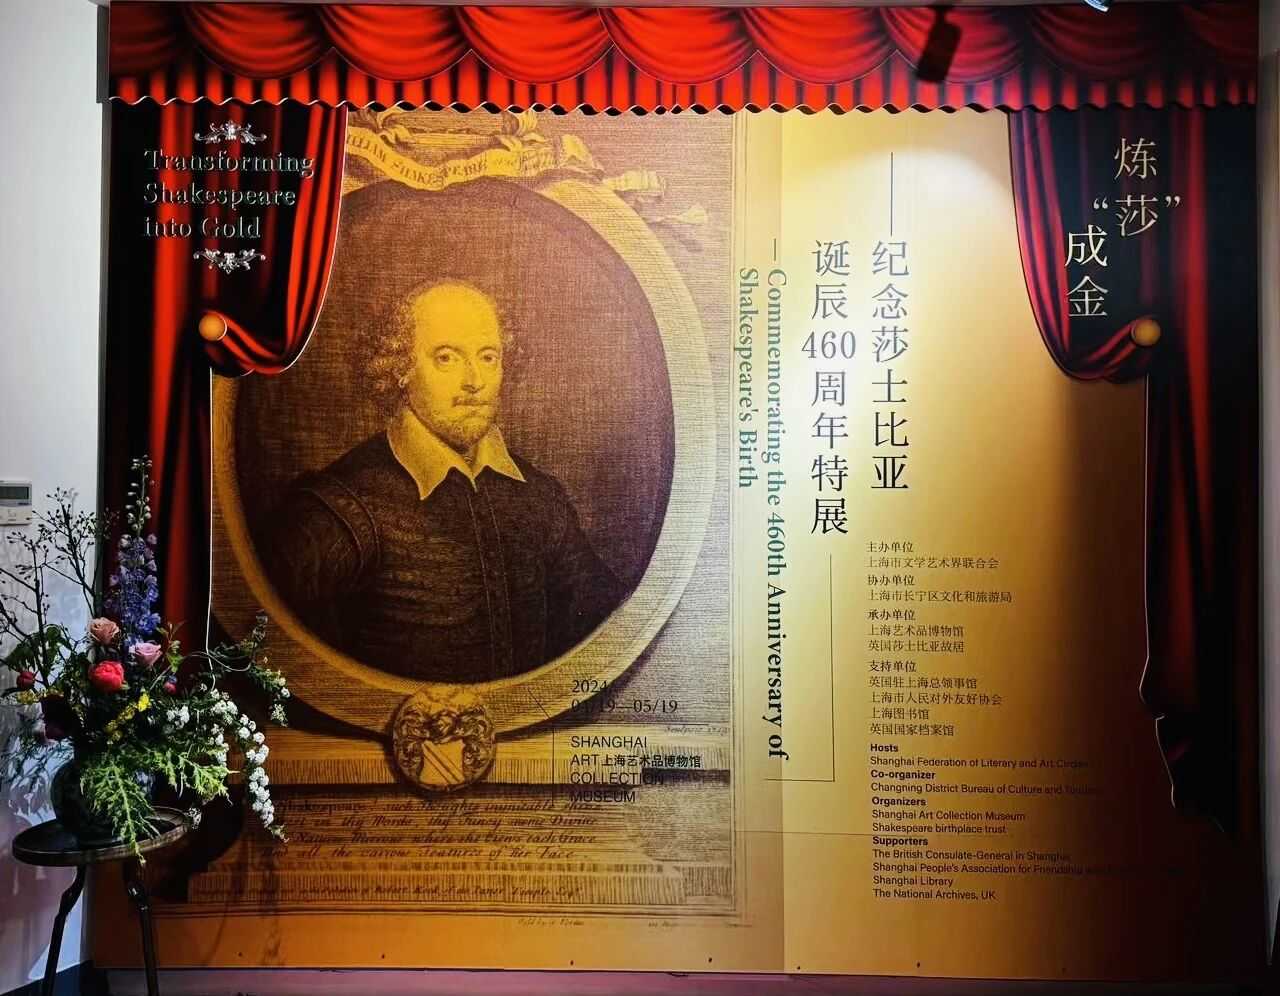 Transforming
Shakespeare
into Gold
炼
“莎”
成
金
——纪念莎士比亚
诞辰460周年特展
—Commemorating the 460th Anniversary of
Shakespeare's Birth
WILLIAM SHAKESPEARE
2024
04/19—05/19
SHANGHAI
ART 上海艺术品博物馆
COLLECTION
MUSEUM
主办单位
上海市文学艺术界联合会
协办单位
上海市长宁区文化和旅游局
承办单位
上海艺术品博物馆
英国莎士比亚故居
支持单位
英国驻上海总领事馆
上海市人民对外友好协会
上海图书馆
英国国家档案馆
Hosts
Shanghai Federation of Literary and Art Circles
Co-organizer
Changning District Bureau of Culture and Tourism
Organizers
Shanghai Art Collection Museum
Shakespeare birthplace trust
Supporters
The British Consulate-General in Shanghai
Shanghai People's Association for Friendship
Shanghai Library
The National Archives, UK
Shakespeare such thoughts inimitable
in thy Words, thy Fancy seems Divine
Nature's Mirrour where she views each Grace
all the various Features of her Face.